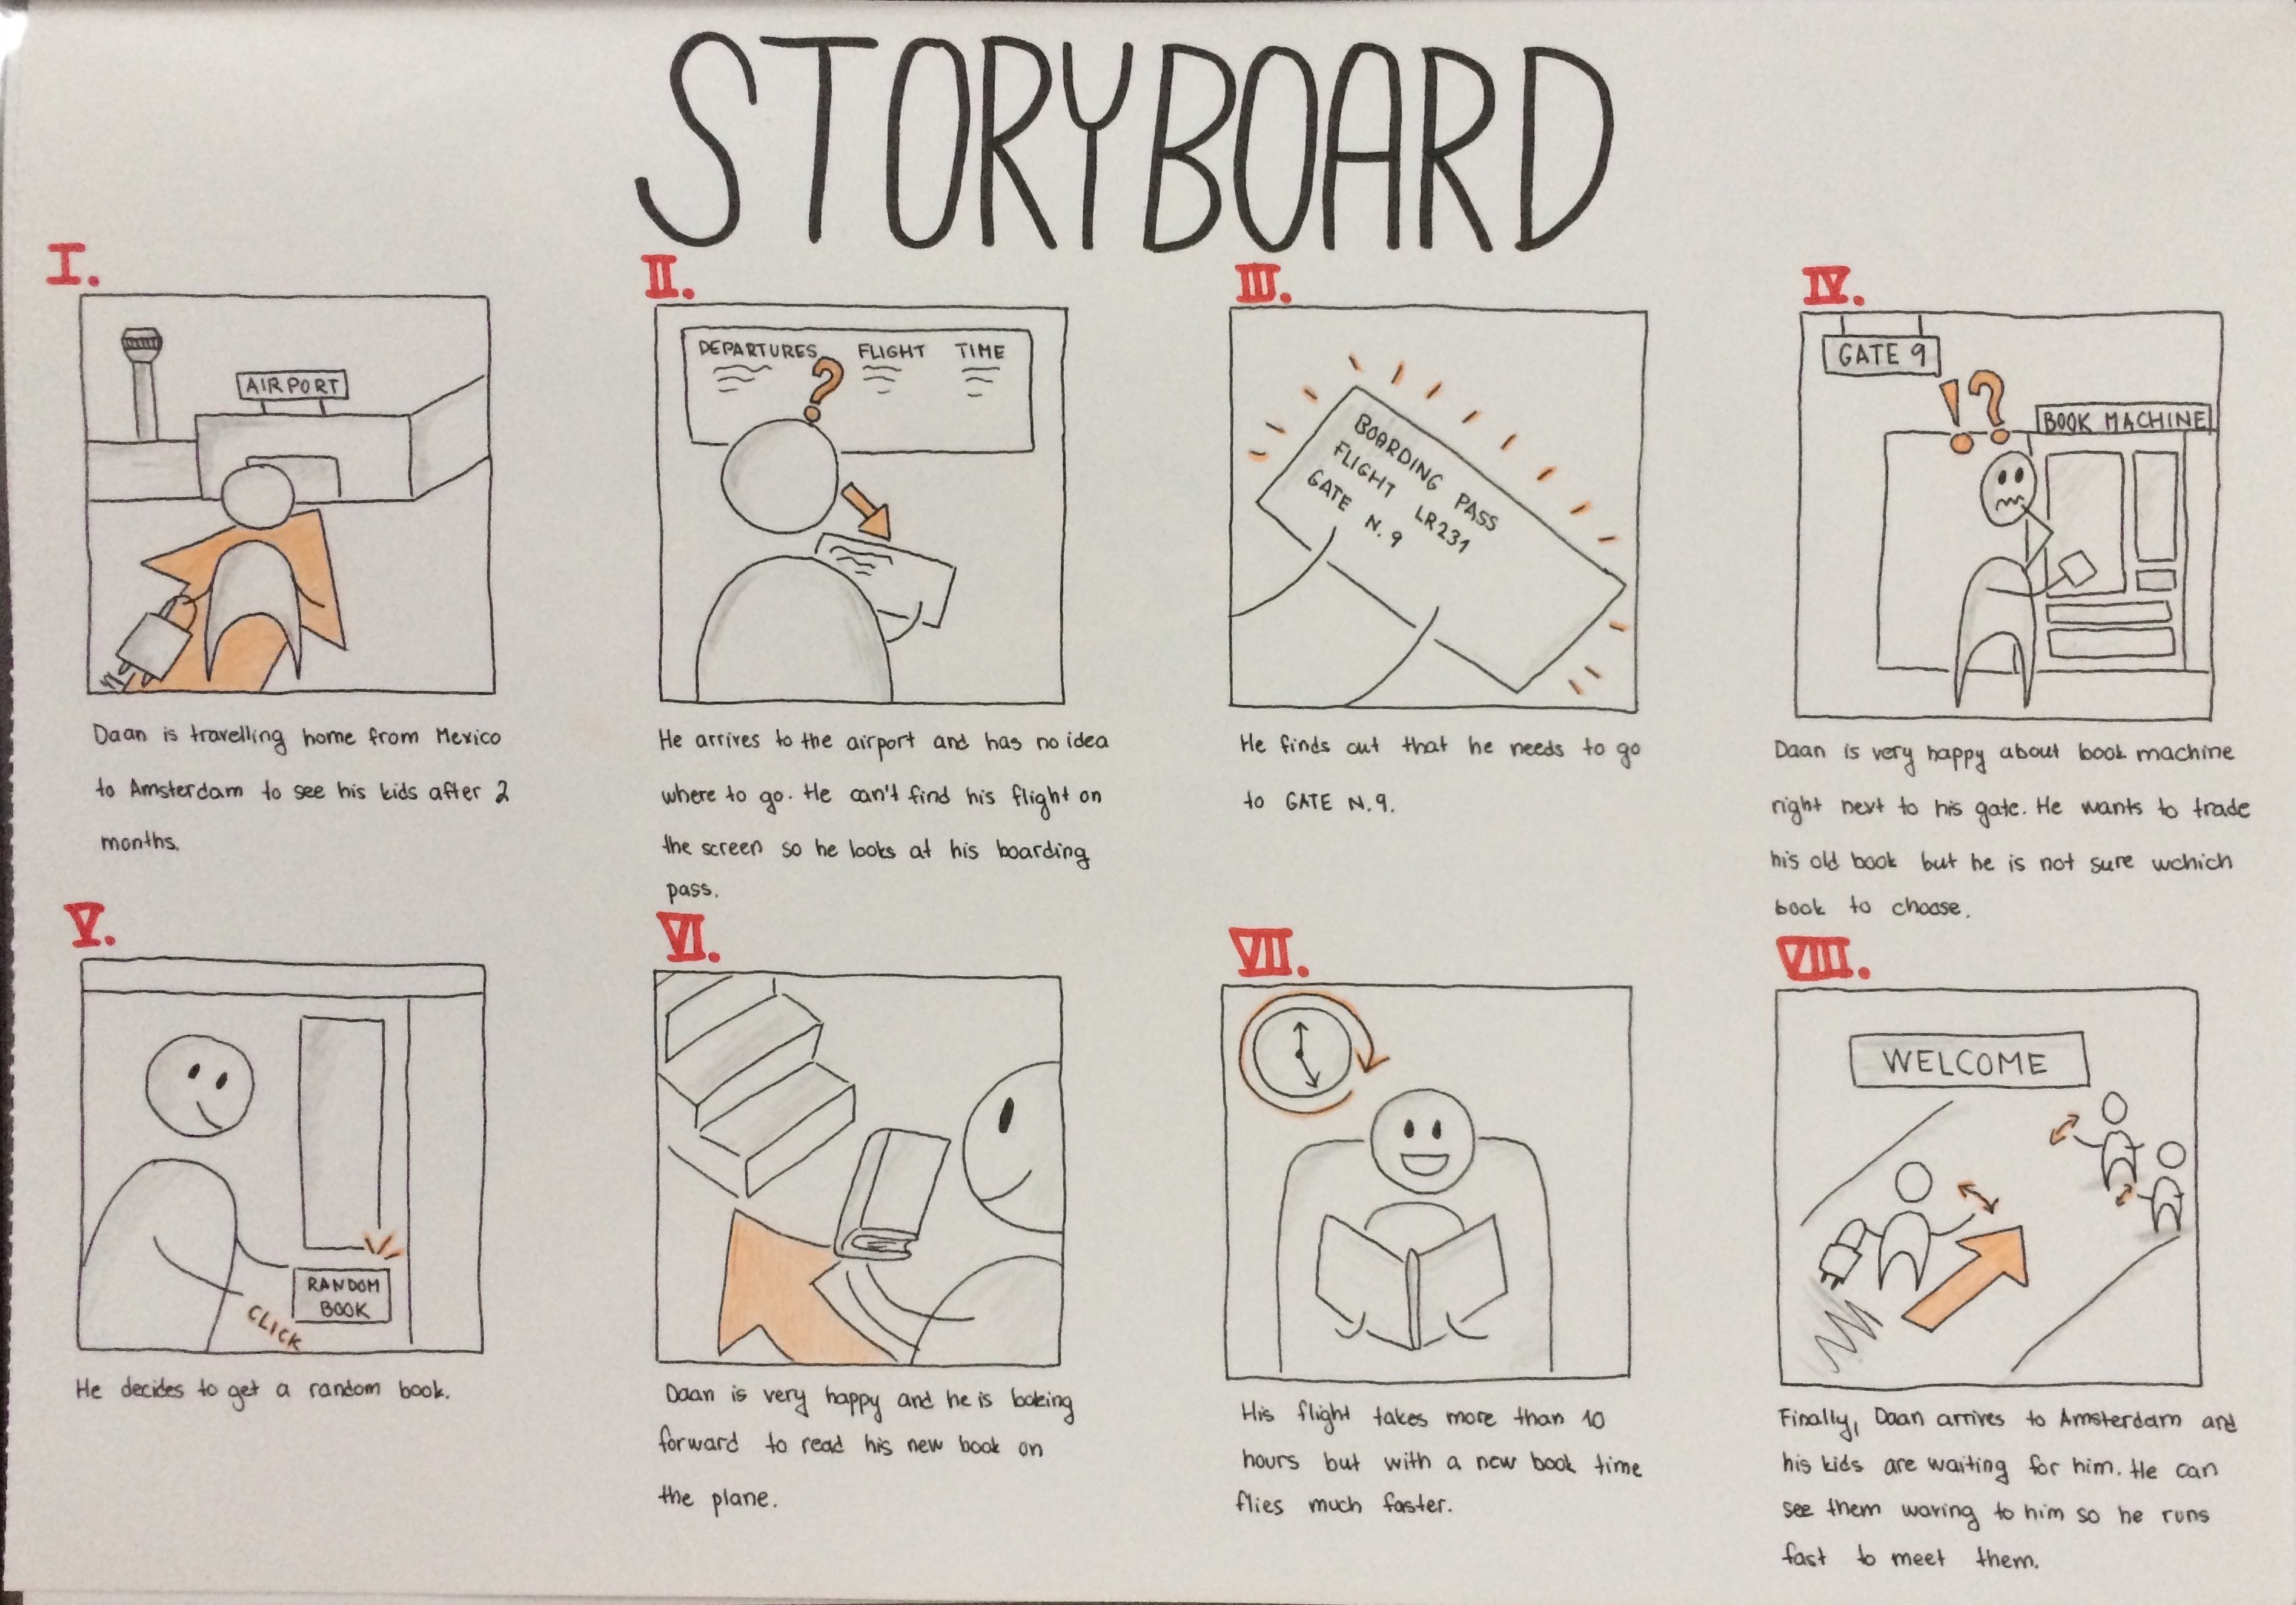 STORYBOARD
I.
AIRPORT
Daan is travelling home from Mexico
to Amsterdam to see his kids after 2
months.
II.
DEPARTURES FLIGHT TIME
?
He arrives to the airport and has no idea
where to go. He can't find his flight on
the screen so he looks at his boarding
pass.
III.
BOARDING PASS
FLIGHT LR231
GATE N.9
He finds out that he needs to go
to GATE N.9.
IV.
GATE 9
!?
BOOK MACHINE
Daan is very happy about book machine
right next to his gate. He wants to trade
his old book but he is not sure wchich
book to choose.
V.
RANDOM
BOOK
CLICK
He decides to get a random book.
VI.
Daan is very happy and he is looking
forward to read his new book on
the plane.
VII.
His flight takes more than 10
hours but with a new book time
flies much faster.
VIII.
WELCOME
Finally, Daan arrives to Amsterdam and
his kids are waiting for him. He can
see them waving to him so he runs
fast to meet them.